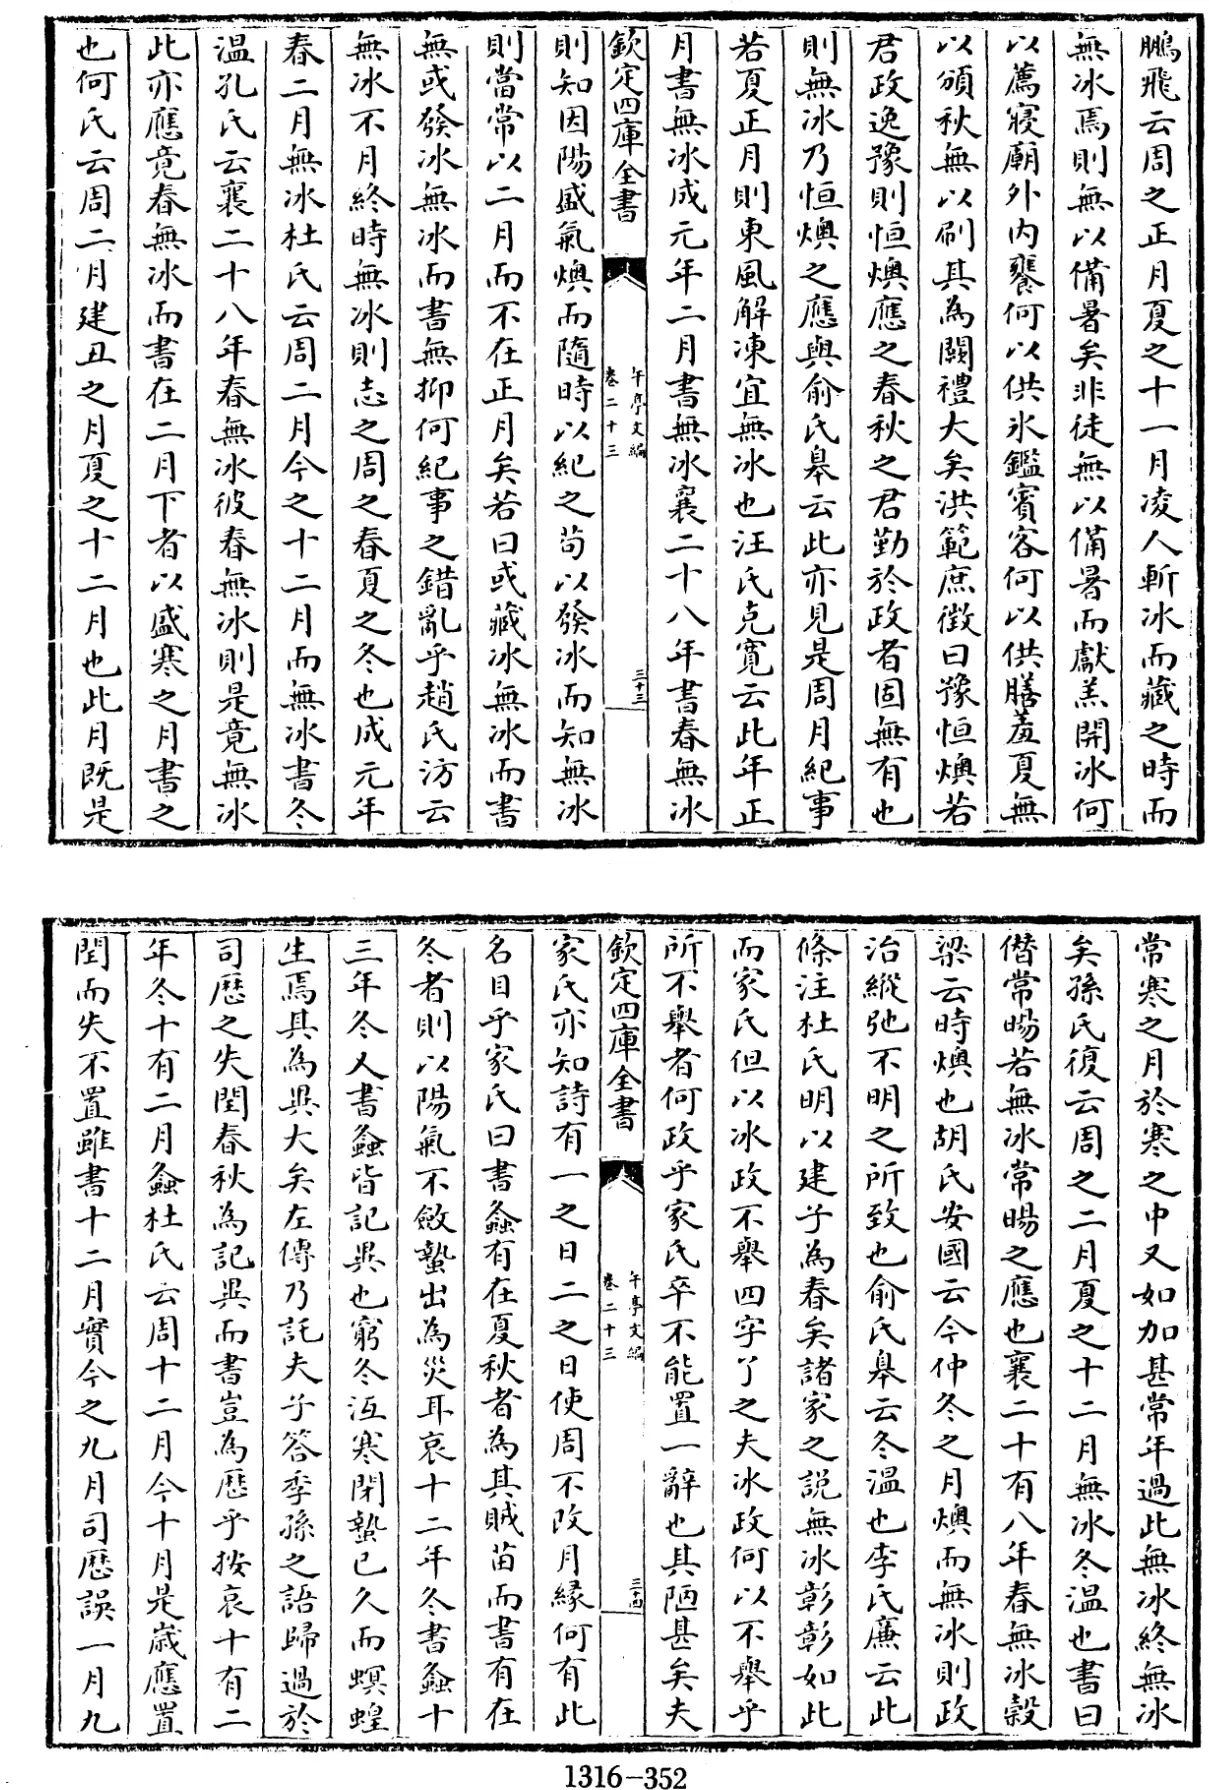 鵬飛云周之正月夏之十一月凌人斬冰而藏之時而
無冰焉則無以備暑矣非徒無以備暑而獻羔開冰何
以薦寢廟外内饔何以供氷鑑賓客何以供膳羞夏無
以頒秋無以刷其為闕禮大矣洪範庶徴曰豫恒燠若
君政逸豫則恒燠應之春秋之君勤於政者固無有也
則無冰乃恒燠之應與俞氏皋云此亦見是周月紀事
若夏正月則東風解凍宜無冰也汪氏克寛云此年正
月書無冰成元年二月書無冰襄二十八年書春無冰
欽定四庫全書
午亭文編
卷二十三
三十三
則知因陽盛氣燠而隨時以紀之茍以發冰而知無冰
則當常以二月而不在正月矣若曰或藏冰無冰而書
無或發冰無冰而書無抑何紀事之錯亂乎趙氏汸云
無冰不月終時無冰則志之周之春夏之冬也成元年
春二月無冰杜氏云周二月今之十二月而無冰書冬
温孔氏云襄二十八年春無冰彼春無冰則是竟無冰
此亦應竟春無冰而書在二月下者以盛寒之月書之
也何氏云周二月建丑之月夏之十二月也此月既是
常寒之月於寒之中又如加甚常年過此無冰終無冰
矣孫氏復云周之二月夏之十二月無冰冬温也書曰
僭常暘若無冰常暘之應也襄二十有八年春無冰穀
梁云時燠也胡氏安國云今仲冬之月燠而無冰則政
治縱弛不明之所致也俞氏皋云冬温也李氏廉云此
條注杜氏明以建子為春矣諸家之説無冰彰彰如此
而家氏但以冰政不舉四字了之夫冰政何以不舉乎
所不舉者何政乎家氏卒不能置一辭也其陋甚矣夫
欽定四庫全書
午亭文編
卷二十三
三十四
家氏亦知詩有一之日二之日使周不改月緣何有此
名目乎家氏曰書螽有在夏秋者為其賊苗而書有在
冬者則以陽氣不斂蟄出為災耳哀十二年冬書螽十
三年冬又書螽皆記異也窮冬沍寒閉蟄已久而螟蝗
生焉其為異大矣左傳乃託夫子答季孫之語歸過於
司歴之失閏春秋為記異而書豈為歴乎按哀十有二
年冬十有二月螽杜氏云周十二月今十月是歳應置
閏而失不置雖書十二月實今之九月司歴誤一月九
1316-352